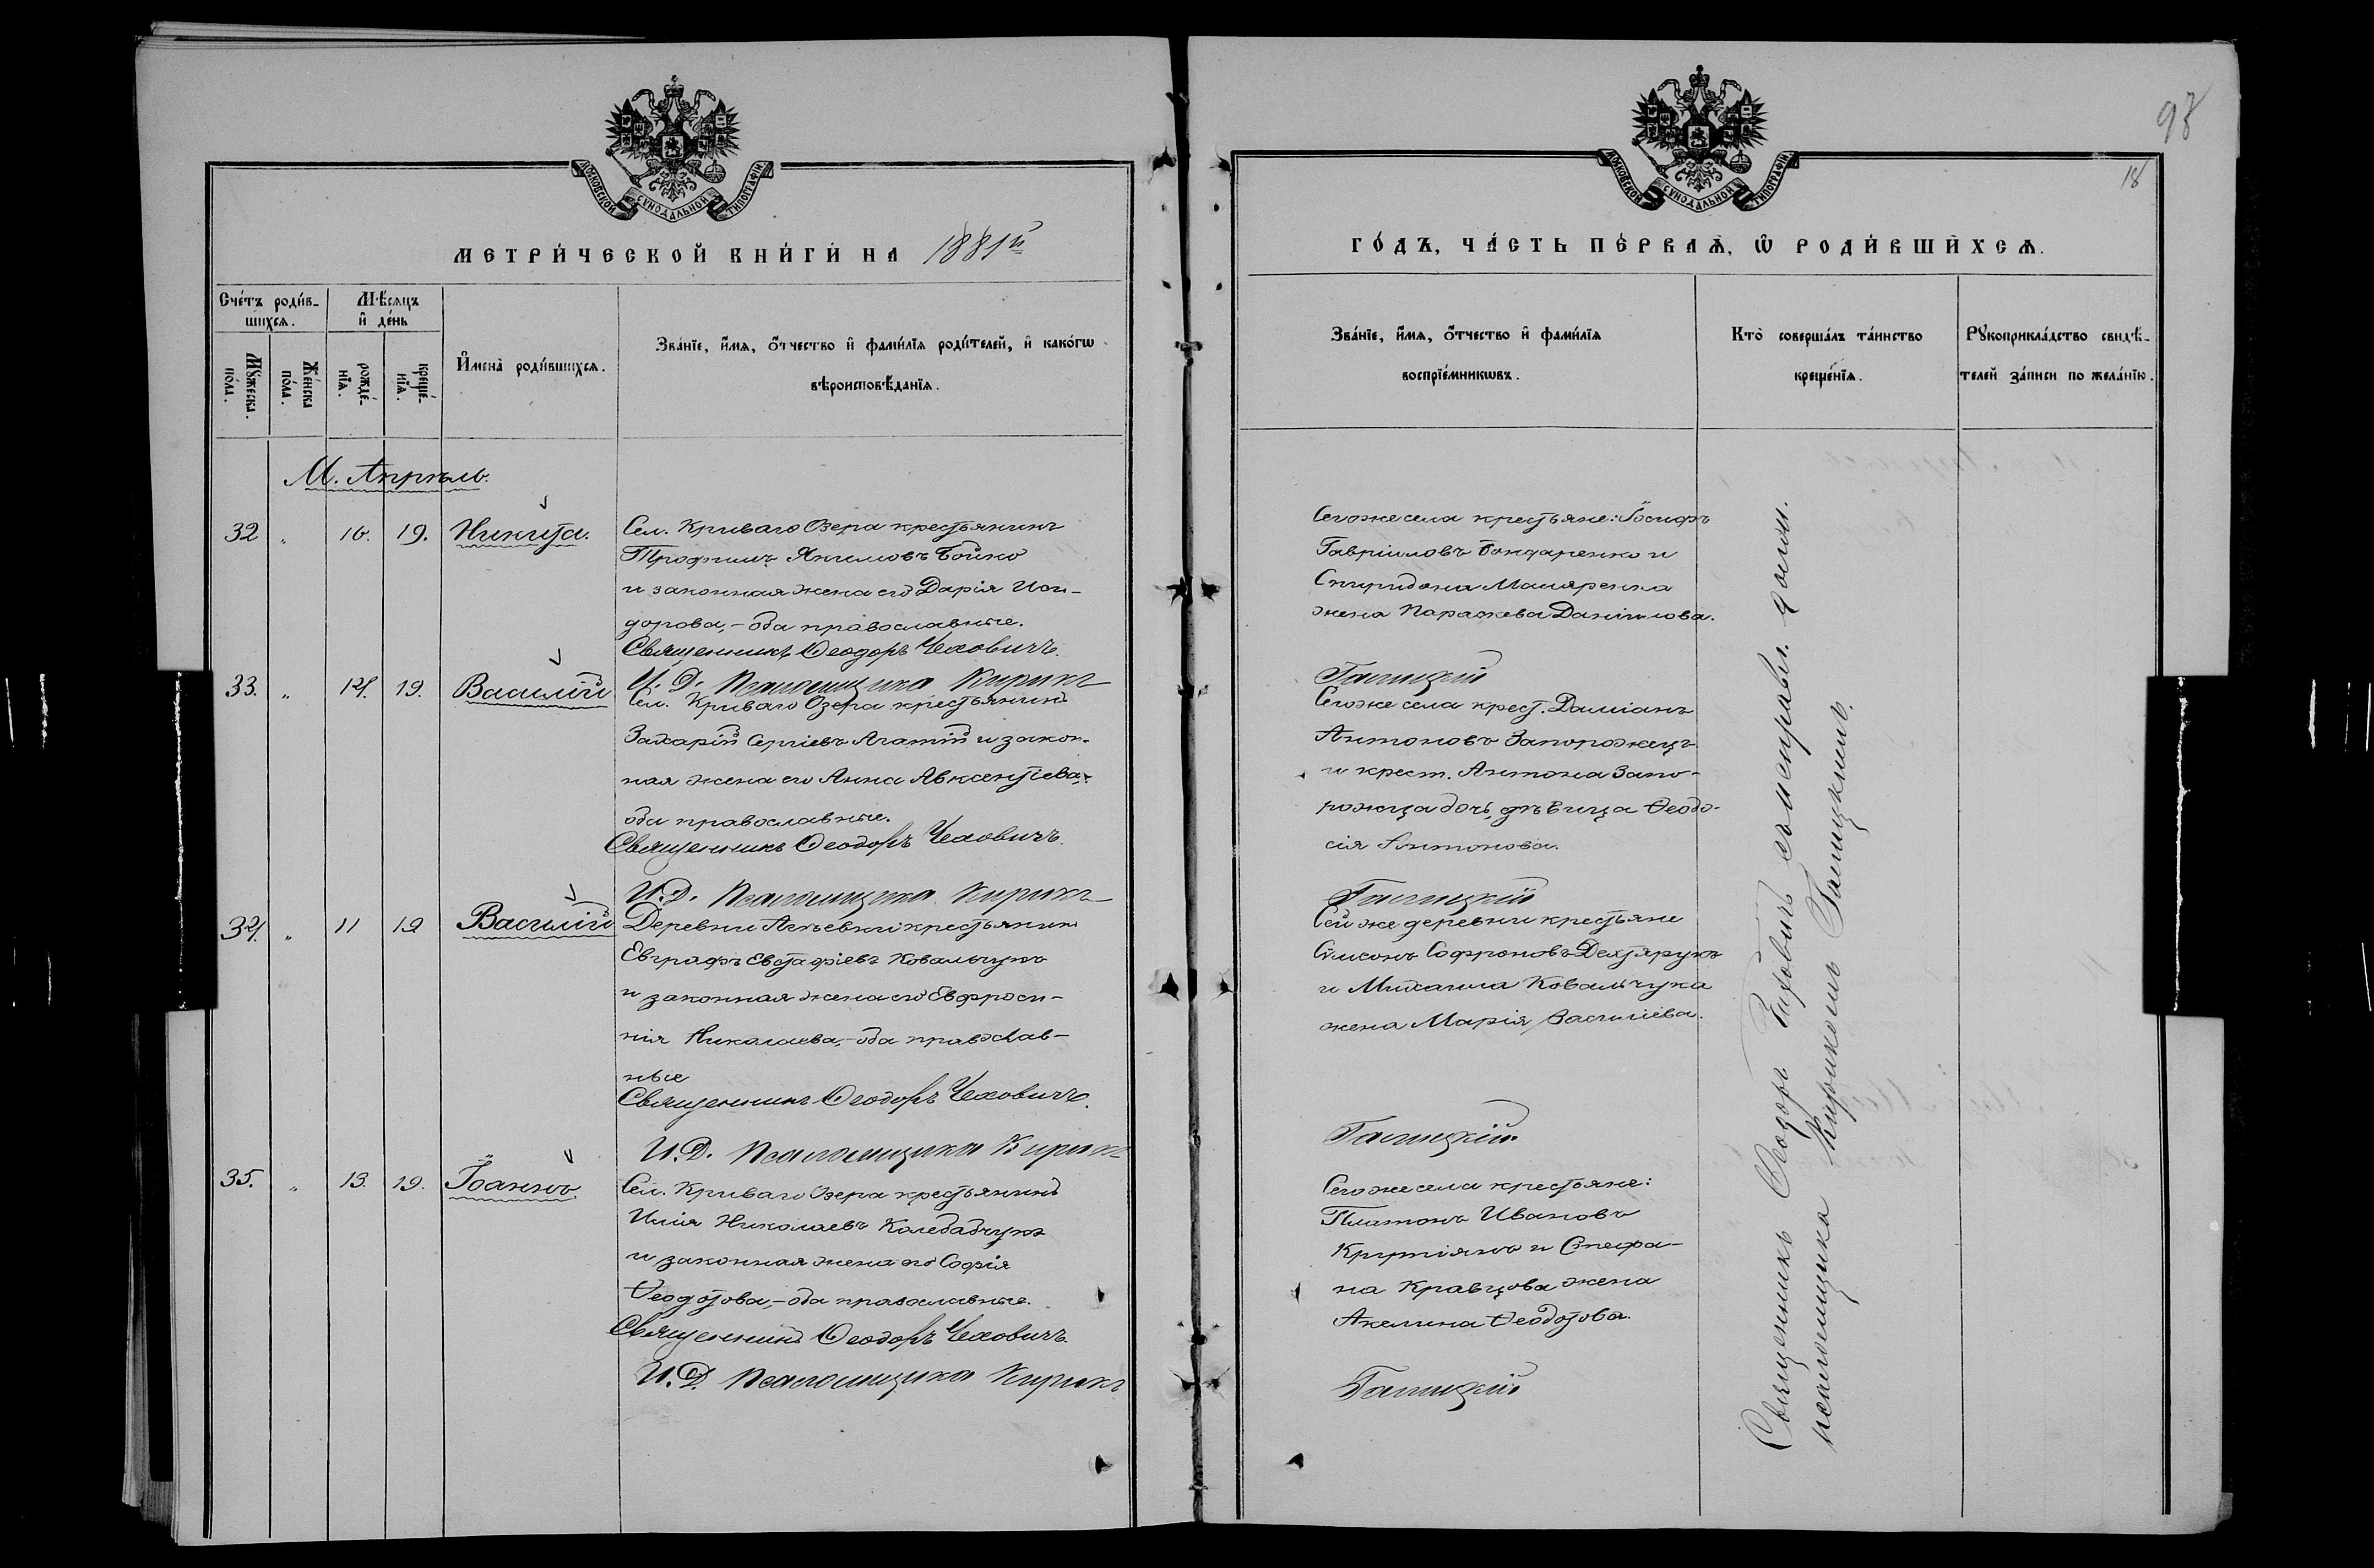 МОСКОВСКОЙ СѴНОДАЛЬНОЙ ТИПОГРАФІИ
МЕТРИ́ЧЕСКОЙ КНИ́ГИ НА 1881й
Сче́тъ роди́в-
шихсѧ.
Мꙋ́жеска
по́ла.
Же́нска
по́ла.
Мѣ́сяцъ
и҆ де́нь
рожде́-
нїѧ.
креще́-
нїѧ.
И҆мена̀ роди́вшихсѧ.
Зва́нїе, и҆́мѧ, ѻ҆́тчество и҆ фами́лїѧ роди́телей, и҆ како́гѡ
вѣроисповѣ́данїѧ.
М. Апрѣль.
32 " 16. 19. Никита.
Сел. Криваго Озера крестьянинъ
Трофимъ Якимовъ Бойко
и законная жена его Дарія Иси-
дорова,- оба православные.
Священникъ Ѳеодоръ Чеховичъ.
И. Д. Псаломщика Кирикъ
33. " 14. 19. Василій
Сел. Криваго Озера крестьянинъ
Захарій Сергіевъ Агатій и закон-
ная жена его Анна Авксентіева,-
оба православные.
Священникъ Ѳеодоръ Чеховичъ.
И. Д. Псаломщика Кирикъ
34. " 11 19 Василій
Деревни крестьянинъ
Евграфъ Евстафіевъ Ковальчукъ
и законная жена его Евфроси-
нія Николаева,- оба православ-
ные
Священникъ Ѳеодоръ Чеховичъ.
И. Д. Псаломщика Кирикъ
35. " 13. 19. Іоаннъ.
Сел. Криваго Озера крестьянинъ
Илія Николаевъ Колебабчукъ
и законная жена его Софія
Ѳеодотова,- оба православные.
Священникъ Ѳеодоръ Чеховичъ.
И. Д. Псаломщика Кирикъ
98
18
МОСКОВСКОЙ СѴНОДАЛЬНОЙ ТИПОГРАФІИ
ГО́ДЪ, ЧА́СТЬ ПЕ́РВАѦ, Ѡ҆ РОДИ́ВШИХСѦ.
Зва́нїе, и҆́мѧ, ѻ҆́тчество и҆ фами́лїѧ
воспрїе́мникѡвъ.
Кто̀ соверша́лъ та́инство
креще́нїѧ.
Рꙋкоприкла́дство свидѣ́-
телей за́писи по жела́нїю.
Сегоже села крестьяне: Іосифъ
Гавріиловъ Бондаренко и
Спиридона Маляренка
жена Параскева Даніилова.
Галицкій
Сегоже села крест. Даміанъ
Антоновъ Запорожецъ
и крест. Антона Запо-
рожца дочь, дѣвица Ѳеодо-
сія Антонова.
Галицкій
Сей же деревни крестьяне
Сѵмеонъ Софроновъ Дехтярукъ
и Михаила Ковальчука
жена Марія Василіева.
Галицкій
Сегоже села крестьяне:
Платонъ Ивановъ
Крутіянъ и Стефа-
на Кравцова жена
Акелина Ѳеодотова.
Галицкій
Священникъ Ѳеодоръ Чеховичъ съ исправл. долж.
псаломщика Кирикомъ Галицкимъ.